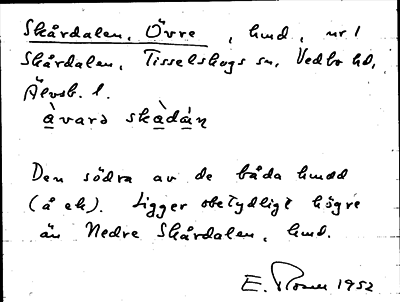 Skårdalen, Övre, hmd, nr 1
Skårdalen, Tisselskogs sn, Vedbo hd,
Älvsb. l.
àvarə skàdán
Den södra av de båda hmdd
(å ek). Ligger obetydligt högre
än Nedre Skårdalen, hmd.
E. 1952